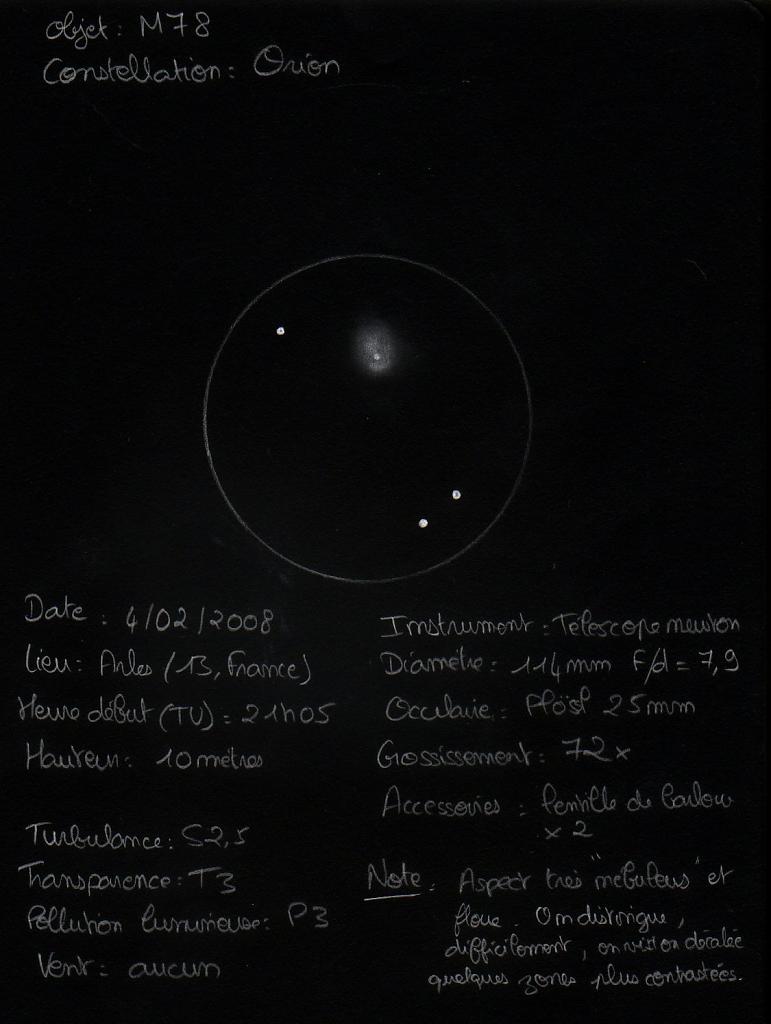 Objet : M78
Constellation : Orion
Date : 4/02/2008
Lieu : Arles (13, France)
Heure début (TU) : 21h05
Hauteur : 10 mètres
Turbulance : S2,5
Transparence : T3
Pollution lumineuse : P3
Vent : aucun
Instrument : Télescope newton
Diamètre : 114mm F/d = 7,9
Occulaire : Plösl 25mm
Gossissement : 72x
Accessoires : lentille de barlow
x 2
Note : Aspect très "nébuleus" et
floue. On distingue,
difficilement, en vision décalée
quelques zones plus contrastées.